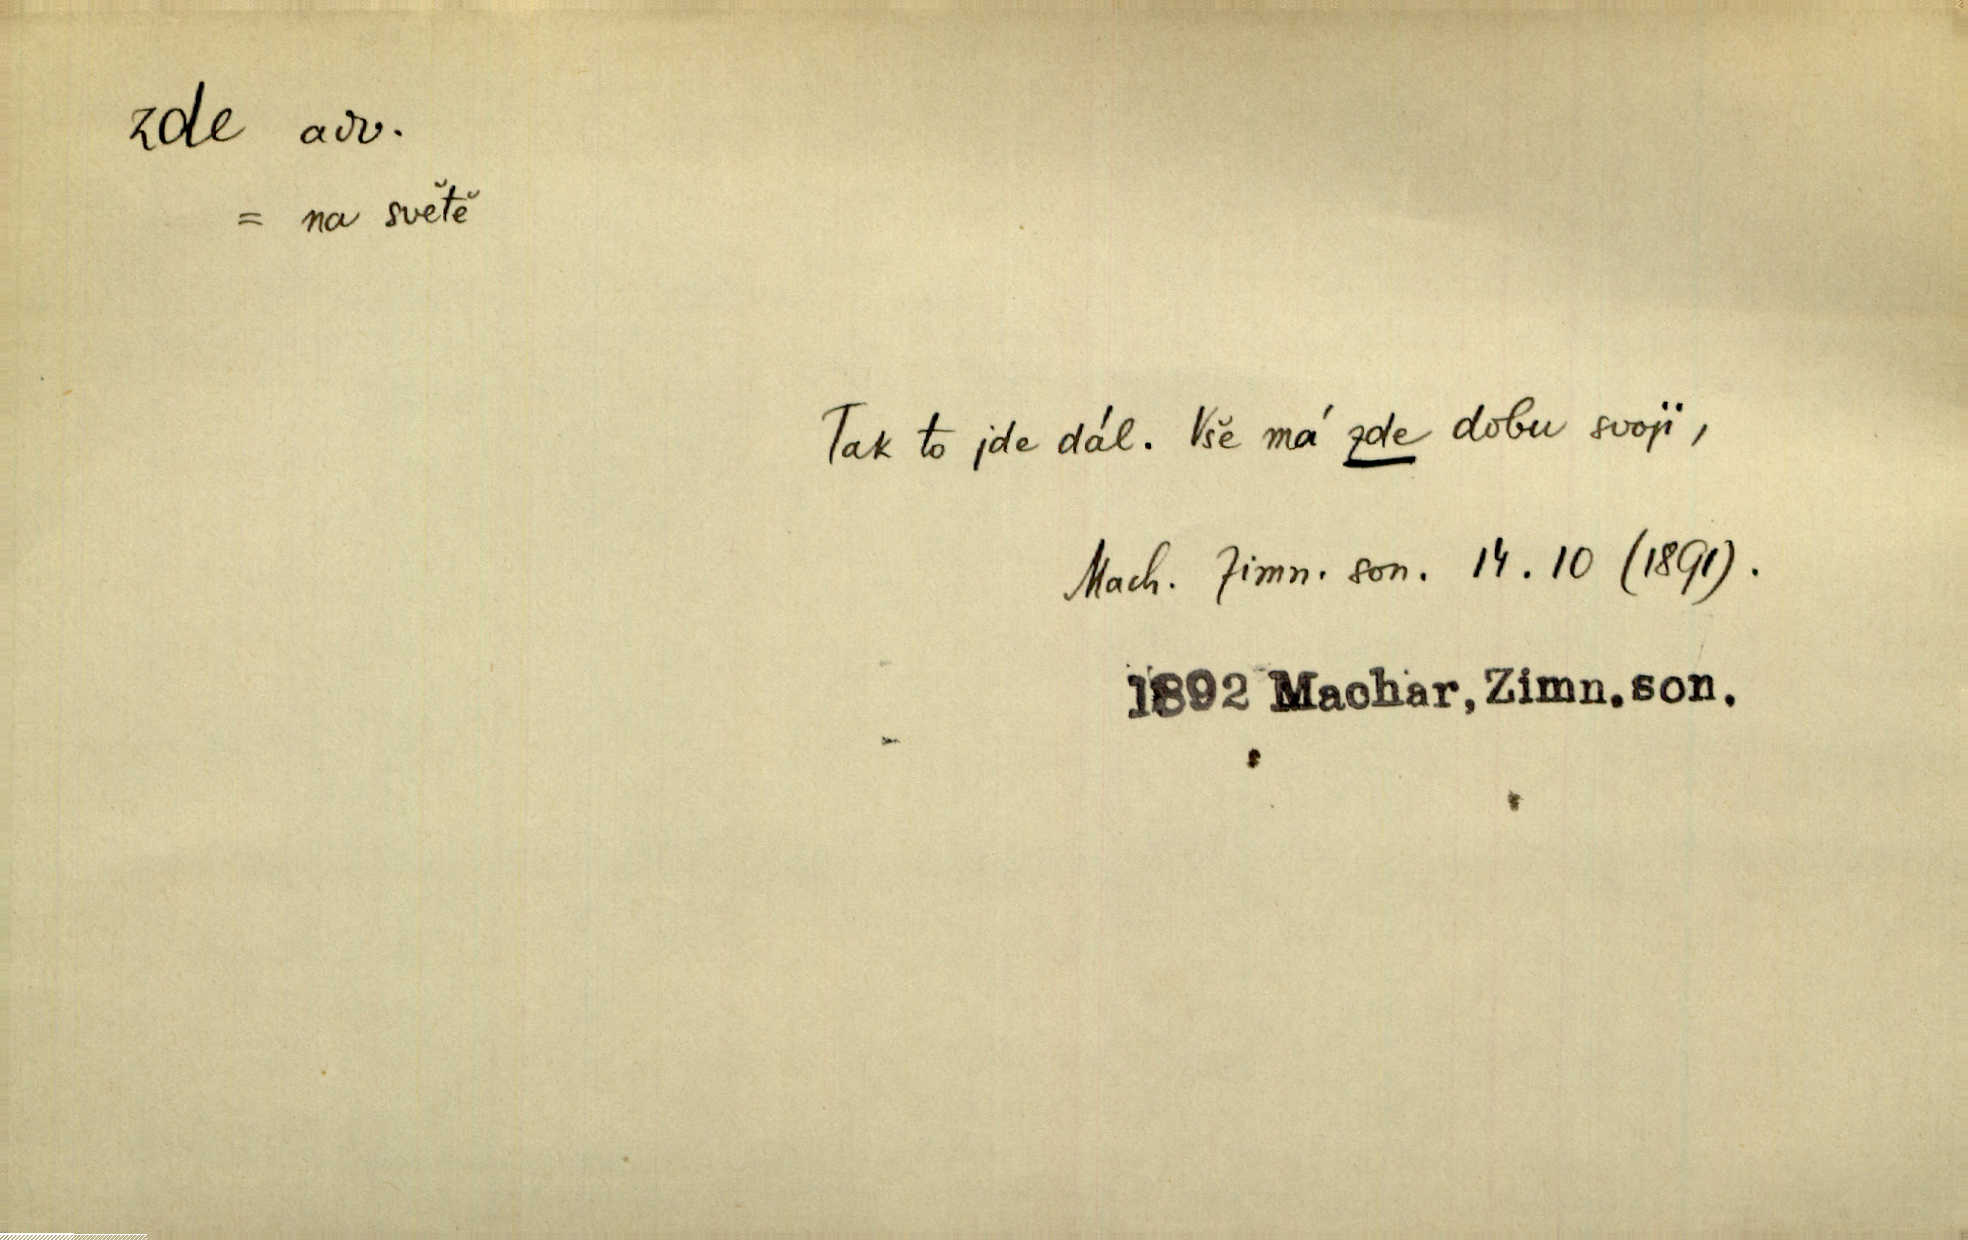 zde adv.
= na světě
Tak to jde dál. Vše má zde dobu svoji,
Mach. Zimn. son. 14. 10 (1891).
1892 Machar, Zimn. son.